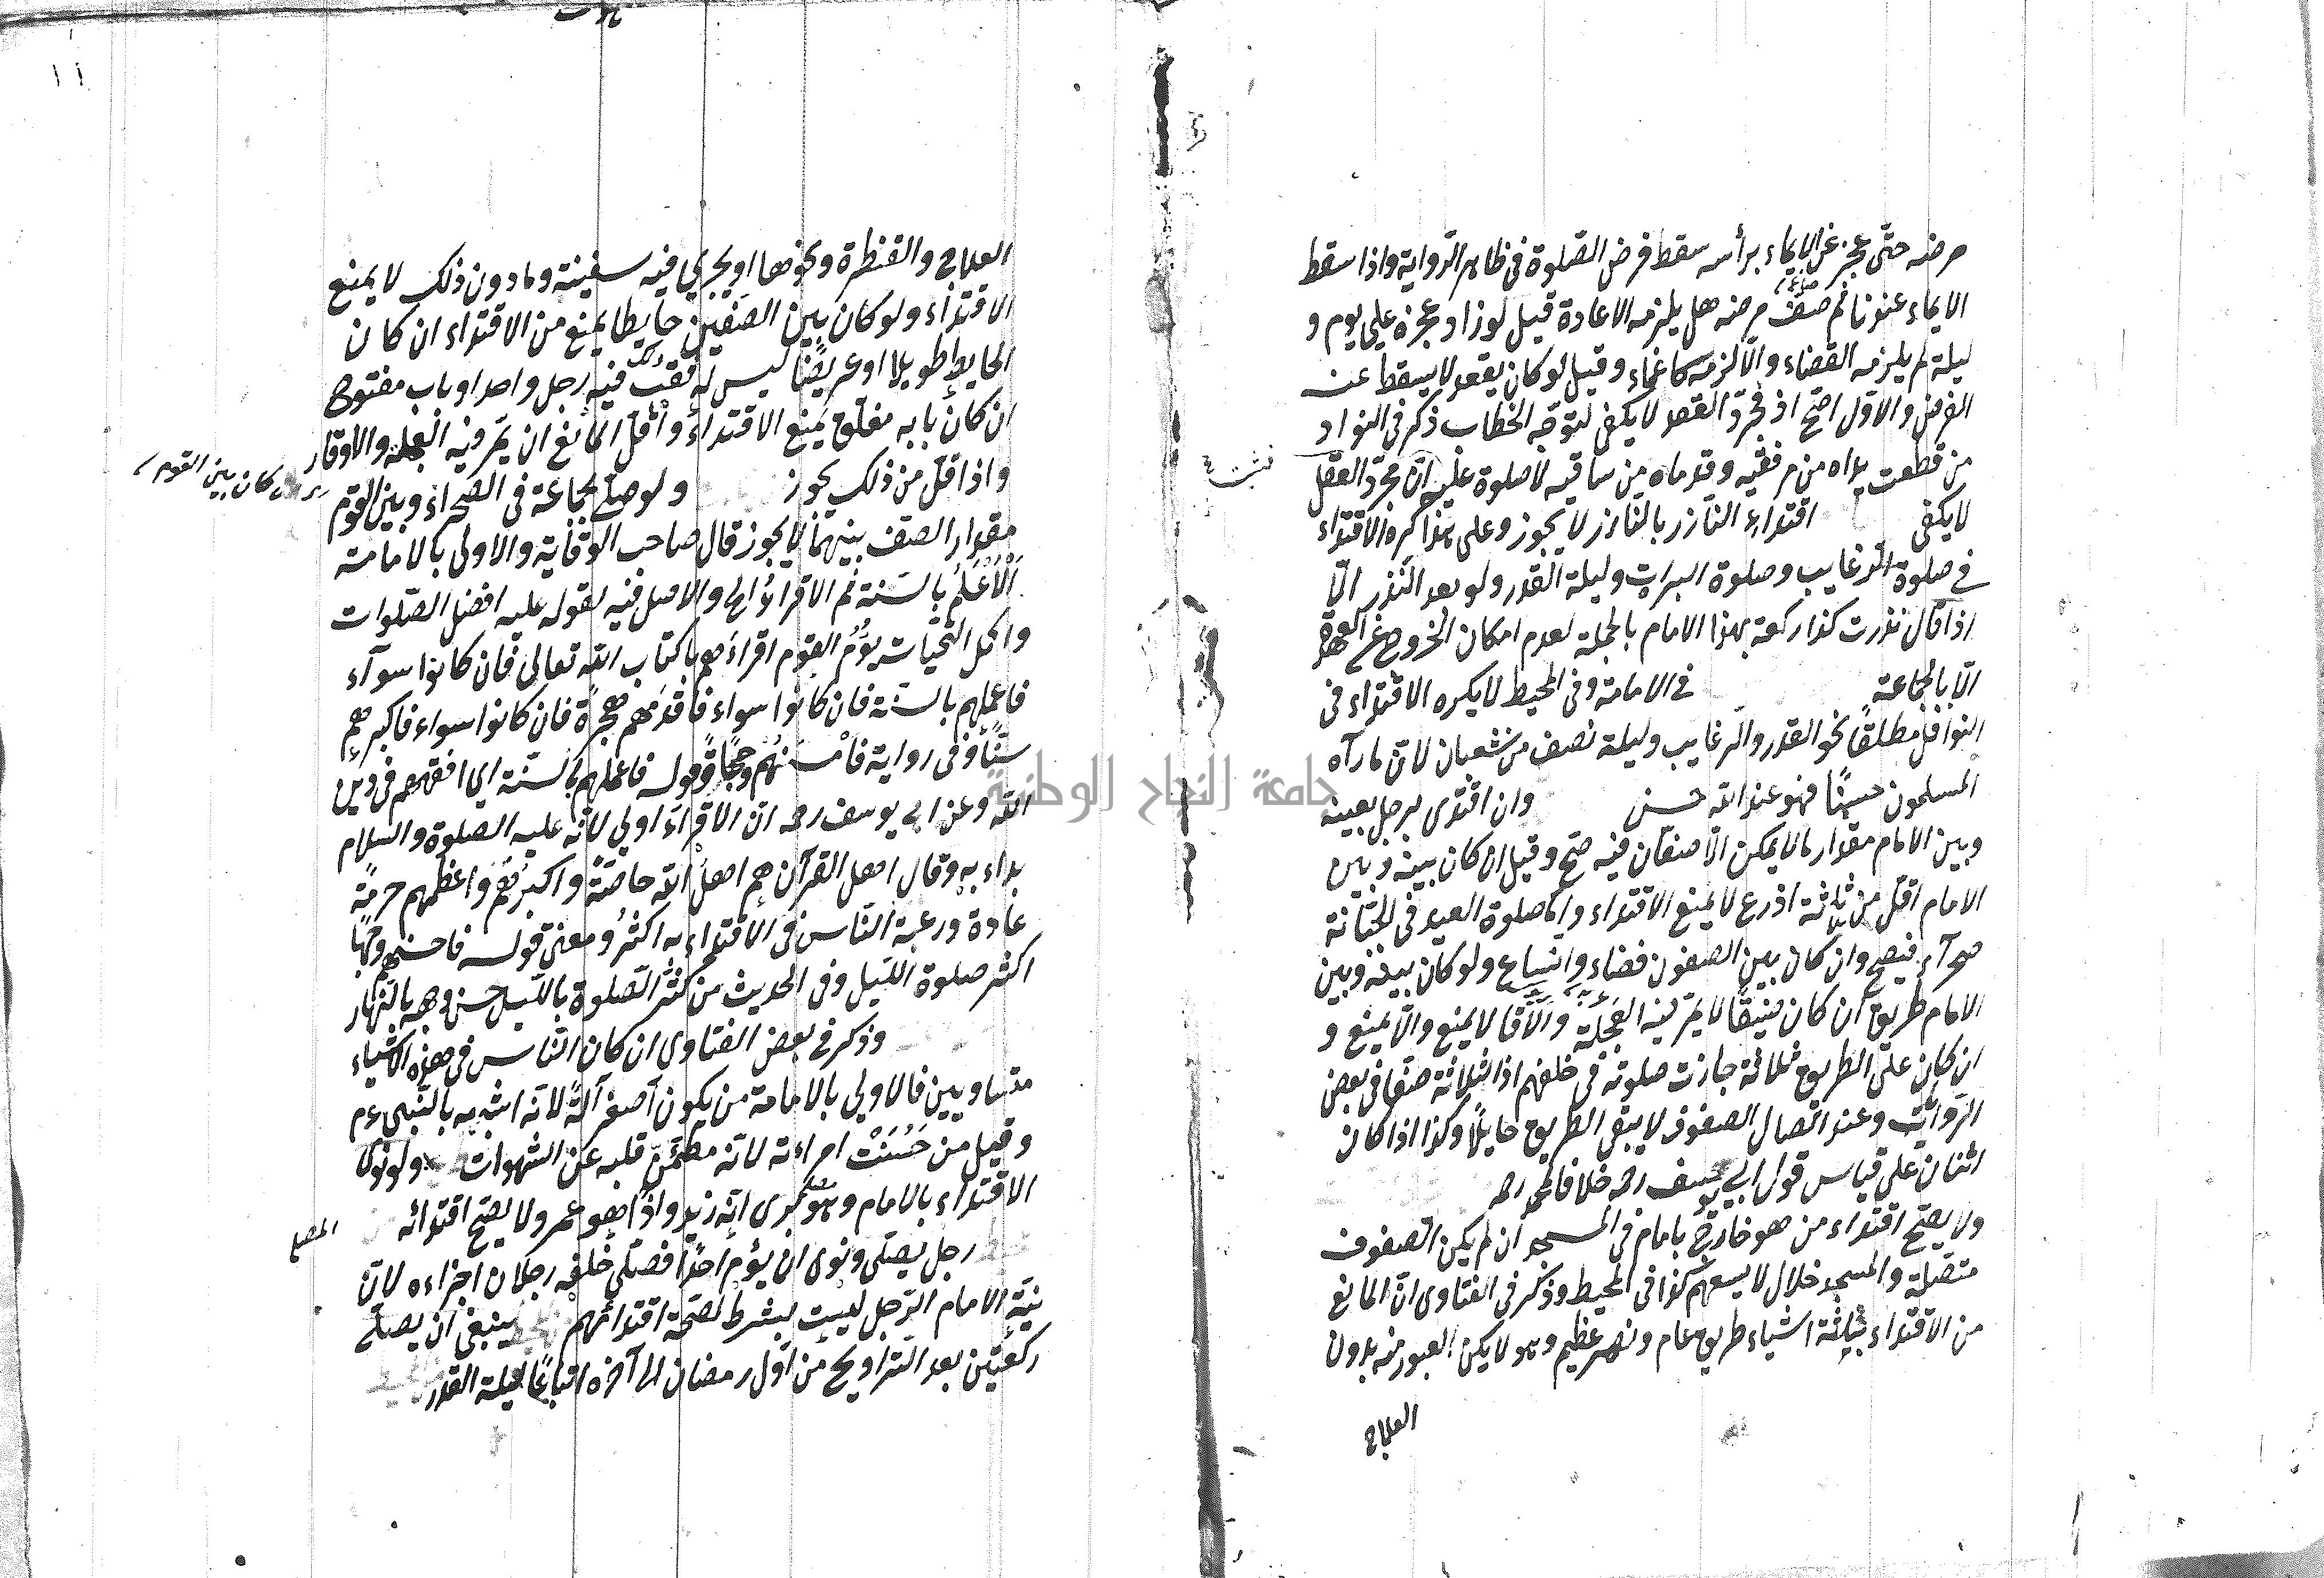 مرضه حتى عجز عن الايماء برأسه سقط فرض الصلوة فى ظاهر الرواية واذا سقط
الايماء عندنا ثم صح مرضه هل يلزمه الاعادة قيل لو زاد عجزه على يوم و
ليلة لم يلزمه القضاء والا لزمه كاغماء وقيل لو كان يقعد لا يسقط عنه
الفرض والاول اصح اذ مجرد العقد لا يكفى لتوجه الخطاب ذكر فى النواد
من قطعت يداه من مرفقيه وقدماه من ساقيه لا صلوة عليه ان مجرد العقل
لا يكفى اقتداء الناذر بالناذر لا يجوز وعلى هذا كره الاقتداء
فى صلوة الرغايب وصلوة البرات وليلة القدر ولو بعد النذر الا
اذا قال نذرت كذا ركعة بهذا الامام بالجملة لعدم امكان الخروج عن العهدة
الا بالجماعة فى الامامة وفى المحيط لا يكره الاقتداء فى
النوافل مطلقا نحو القدر والرغايب وليلة نصف من شعبان لان ما رآه
المسلمون حسنا فهو عند الله حسن وان اقتدى برجل بعينه
وبين الامام مقدار ما لا يمكن الاصفان فيه صح وقيل ان كان بينه وبين
الامام اقل من ثلثة اذرع لا يمنع الاقتداء واما صلوة العيد فى الجبانة
صحرآء فيصح وان كان بين الصفون فضاء واتساع ولو كان بينه وبين
الامام طريق ان كان ضيقا لا يمر فيه العجلة والا لا يمنع والا يمنع و
ان كان على الطريق ثلاثة جازت صلوته فى خلفهم اذا ثلاثة صف فى بعض
الروايات وعند اتصال الصفوف لا يبقى الطريق حايلا وكذا اذا كان
اثنان على قياس قول ابى يوسف رحمه خلافا لمحمد رحمه
ولا يصح اقتداء من هو خارج بامام فى المسجد ان لم يكن الصفوف
متصلة والمسجد خلال لا يسعهم كذا فى المحيط وذكر فى الفتاوى ان المانع
من الاقتداء ثلثة اشياء طريق عام ونهر عظيم وهو لا يكن العبور منه بدون
العلاج
١١
العلاج والقنطرة ونحوها او يجرى فيه سفينة وما دون ذلك لا يمنع
الاقتداء ولو كان بين الصفين حايطا يمنع من الاقتداء ان كان
الحايط طويلا او عريضا ليس له نقب فيه رجل واحد او باب مفتوح
ان كان بابه مغلق يمنع الاقتداء واقل المانع ان يمر فيه العجلة والاوقار
كان بين القوم
واذا قل من ذلك يجوز ولو صلى بجماعة فى الصحراء وبين القوم
مقدار الصف بينهما لا يجوز قال صاحب الوقاية والاولى بالامامة
الاعلم بالسنة ثم الاقراء الخ والاصل فيه لقوله عليه افضل الصلوات
واكمل التحيات يؤم القوم اقراءهم بكتاب الله تعالى فان كانوا سوآء
فاعلمهم بالسنة فان كانوا سواء فاقدمهم هجرة فان كانوا سواء فاكبرهم
سنا وفى رواية فاحسنهم وجها وقوله فاعلمهم بالسنة اى افقههم فى دين
الله وعن ابى يوسف رحمه ان الاقراء اولى لانه عليه الصلوة والسلام
بداء به وقال اهل القرآن هم اهل الله خاصة واكبرهم واعظمهم حرمة
عادة ورغبة الناس فى الاقتداء به اكثر ومعنى قوله فاحسنهم وجها
اكثر صلوة الليل وفى الحديث من كثر الصلوة بالليل حسن وجهه بالنهار
وذكر فى بعض الفتاوى ان كان الناس فى هذه الاشياء
متساويين فالاولى بالامامة من يكون اصغر آلة لانه اشبه بالنبى عم
وقيل من حسنت امراءته لانه مطمئن قلبه عن الشهوات ولو نوى
الاقتداء بالامام وهو يرى انه زيد واذا هو عمرو لا يصح اقتدائه
المصلى
رجل يصلى ونوى ان يؤم احدا فصلى خلفه رجلان اجزاءه لان
نية الامام الرجل ليست بشرط لصحة اقتدائهم ينبغى ان يصلى
ركعتين بعد التراويح من اول رمضان الى آخره اتباعا لليلة القدر
جامعة النجاح الوطنية